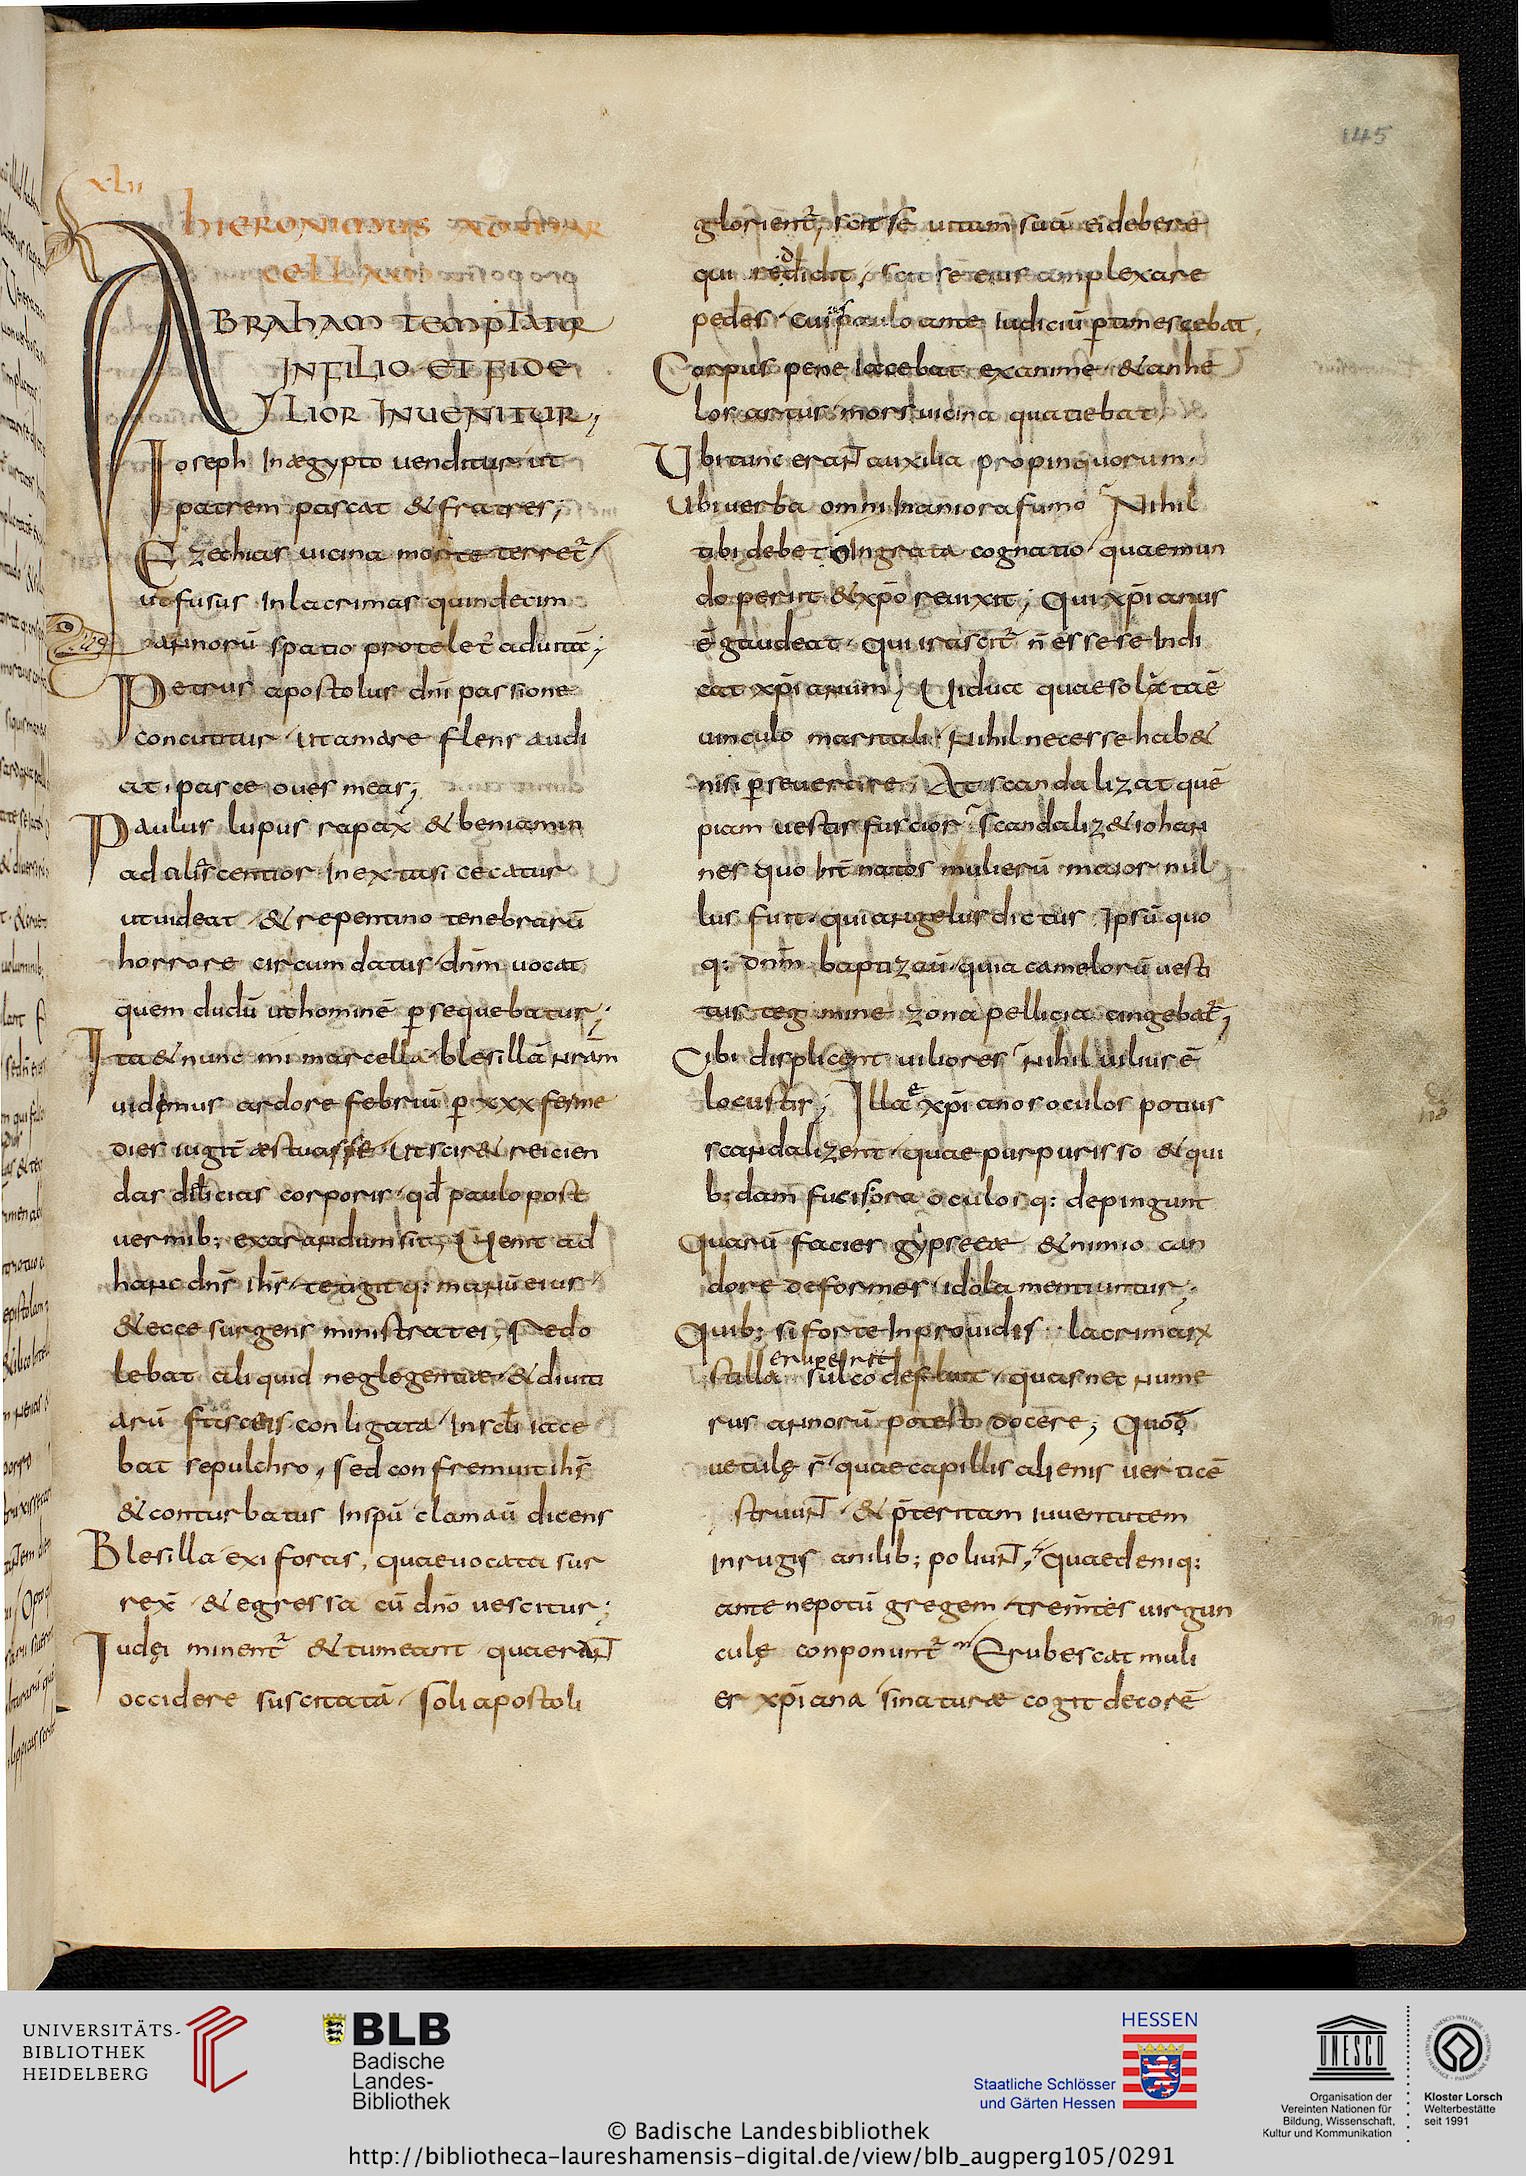 145
XLII
HIERONIMUS AD MAR
CELLAM
ABRAHAM TEMPTATUR
IN FILIO ET FIDE
LIOR INUENITUR;
Ioseph In ægypto uenditur ut
patrem pascat & fratres;
Ezechias uicina morte terret᷑
ut fusus In lacrimas quindecim
annorū spatio protelet᷑ ad uitā;
Petrus apostolus dn̄i passione
concutitur ut amare flens audi
at, pasce oues meas;
Paulus lupus rapax & beniamin
adulisc̄entior In extasi cecatur
ut uideat, & repentino tenebrarū
horrore circumdatus dn̄m uocat
quem dudū ut hominē ꝑsequebatur;
Ita & nunc mi marcella blesillā nr̄am
uidemus ardore febriū ꝑ xxx ferme
dies iugit̄ æstuasse, ut scir& reicien
das dilicias corporis, qđ paulo post
uermib; exarandum sit, Uenit ad
hanc dn̄s ih̄s, tetigit q: manū eius
& ecce surgens ministrat ei, Redo
lebat aliquid neglegentiæ, & diuiti
arū fasceis conligata In sęcl̄i iace
bat sepulchro, sed confremuit ih̄s
& conturbatus In sp̄u clamau̅ dicens
Blesilla exi foras, quae uocata sur
rex̄ & egressa cū dn̄o uescitur;
Iudęi minent᷑ & tumeant quaerant
occidere suscitatā, soli apostoli
glorient᷑, scit se uitam suā ei debere
qui reddidit, scit se eius amplexare
pedes cuius paulo ante Iudiciū ꝑtimescebat,
Corpus pene Iacebat exanime & anhe
los artus mors uicina quatiebat,
Ubi tunc erant auxilia propinquorum,
Ubi uerba omni Inaniora fumo Nihil
tibi debet o Ingrata cognatio quae mun
do periit & xp̄o reuixit; qui xp̄ianus
ē gaudeat, qui irascit᷑ n̄ esse se Indi
cat xp̄ianum, Uidua quae soluta ē
uinculo maritali, Nihil necesse hab&
nisi ꝑseuerare; At scandalizat quē
piam uestis fuscior scandaliz& iohan
nes quo Int̄ natos mulierū maior nul
lus fuit, qui angelus dictus Ipsū quo
q: dn̄m baptizau̅ quia camelorū uesti
tus tegmine zona pellicia cingebat᷑;
Cibi displicent uiliores Nihil uilius ē
locustis; Illae xp̄ianos oculos potius
scandalizent, quae purpurisso & qui
b;dam fucis ora oculosq: depingunt
Quarū facies gypseæ & nimio can
dore deformes idola mentiuntur,
Quib; si forte Inprouidis lacrimarū
eruperit
stilla sulco defluit, quas nec nume
rus annorū potest docere; Quom̄
uetulę s̄ quae capillis alienis uerticē
struunt, & p̄teritam iuuentutem
in rugis anilib; poliunt, quae deniq:
ante nepotū gregem trementes uirgun
culę conponunt᷑ Erubescat muli
er xp̄iana si naturæ cogit decorē
UNIVERSITÄTS-
BIBLIOTHEK
HEIDELBERG
BLB
Badische
Landes-
Bibliothek
HESSEN
Staatliche Schlösser
und Gärten Hessen
UNESCO
Organisation der
Vereinten Nationen für
Bildung, Wissenschaft,
Kultur und Kommunikation
Kloster Lorsch
Welterbestätte
seit 1991
© Badische Landesbibliothek
http://bibliotheca-laureshamensis-digital.de/view/blb_augperg105/0291